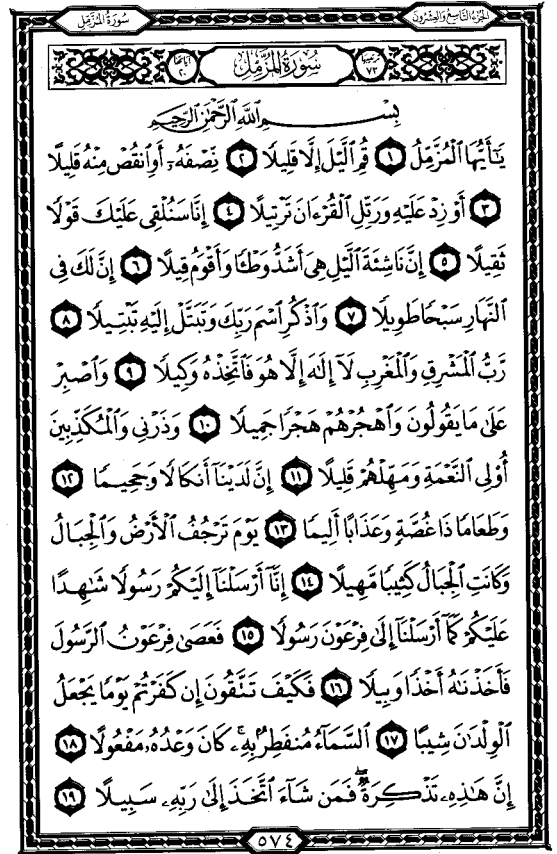 سُورَةُ المُزَّمِّل
الجُزءُ التَّاسِعُ وَالعِشْرُونَ
ترتيبها ٧٣
سُورَةُ المُزَّمِّلِ
آياتها ٢٠
بِسْمِ ٱللَّهِ ٱلرَّحْمَٰنِ ٱلرَّحِيمِ
يَٰٓأَيُّهَا ٱلْمُزَّمِّلُ ١ قُمِ ٱلَّيْلَ إِلَّا قَلِيلًا ٢ نِّصْفَهُۥٓ أَوِ ٱنقُصْ مِنْهُ قَلِيلًا
٣ أَوْ زِدْ عَلَيْهِ وَرَتِّلِ ٱلْقُرْءَانَ تَرْتِيلًا ٤ إِنَّا سَنُلْقِى عَلَيْكَ قَوْلًا
ثَقِيلًا ٥ إِنَّ نَاشِئَةَ ٱلَّيْلِ هِىَ أَشَدُّ وَطْـًٔا وَأَقْوَمُ قِيلًا ٦ إِنَّ لَكَ فِى
ٱلنَّهَارِ سَبْحًا طَوِيلًا ٧ وَٱذْكُرِ ٱسْمَ رَبِّكَ وَتَبَتَّلْ إِلَيْهِ تَبْتِيلًا ٨
رَّبُّ ٱلْمَشْرِقِ وَٱلْمَغْرِبِ لَآ إِلَٰهَ إِلَّا هُوَ فَٱتَّخِذْهُ وَكِيلًا ٩ وَٱصْبِرْ
عَلَىٰ مَا يَقُولُونَ وَٱهْجُرْهُمْ هَجْرًا جَمِيلًا ١٠ وَذَرْنِى وَٱلْمُكَذِّبِينَ
أُو۟لِى ٱلنَّعْمَةِ وَمَهِّلْهُمْ قَلِيلًا ١١ إِنَّ لَدَيْنَآ أَنكَالًا وَجَحِيمًا ١٢
وَطَعَامًا ذَا غُصَّةٍ وَعَذَابًا أَلِيمًا ١٣ يَوْمَ تَرْجُفُ ٱلْأَرْضُ وَٱلْجِبَالُ
وَكَانَتِ ٱلْجِبَالُ كَثِيبًا مَّهِيلًا ١٤ إِنَّآ أَرْسَلْنَآ إِلَيْكُمْ رَسُولًا شَٰهِدًا
عَلَيْكُمْ كَمَآ أَرْسَلْنَآ إِلَىٰ فِرْعَوْنَ رَسُولًا ١٥ فَعَصَىٰ فِرْعَوْنُ ٱلرَّسُولَ
فَأَخَذْنَٰهُ أَخْذًا وَبِيلًا ١٦ فَكَيْفَ تَتَّقُونَ إِن كَفَرْتُمْ يَوْمًا يَجْعَلُ
ٱلْوِلْدَٰنَ شِيبًا ١٧ ٱلسَّمَآءُ مُنفَطِرٌۢ بِهِۦ ۚ كَانَ وَعْدُهُۥ مَفْعُولًا ١٨
إِنَّ هَٰذِهِۦ تَذْكِرَةٌ ۖ فَمَن شَآءَ ٱتَّخَذَ إِلَىٰ رَبِّهِۦ سَبِيلًا ١٩
٥٧٤